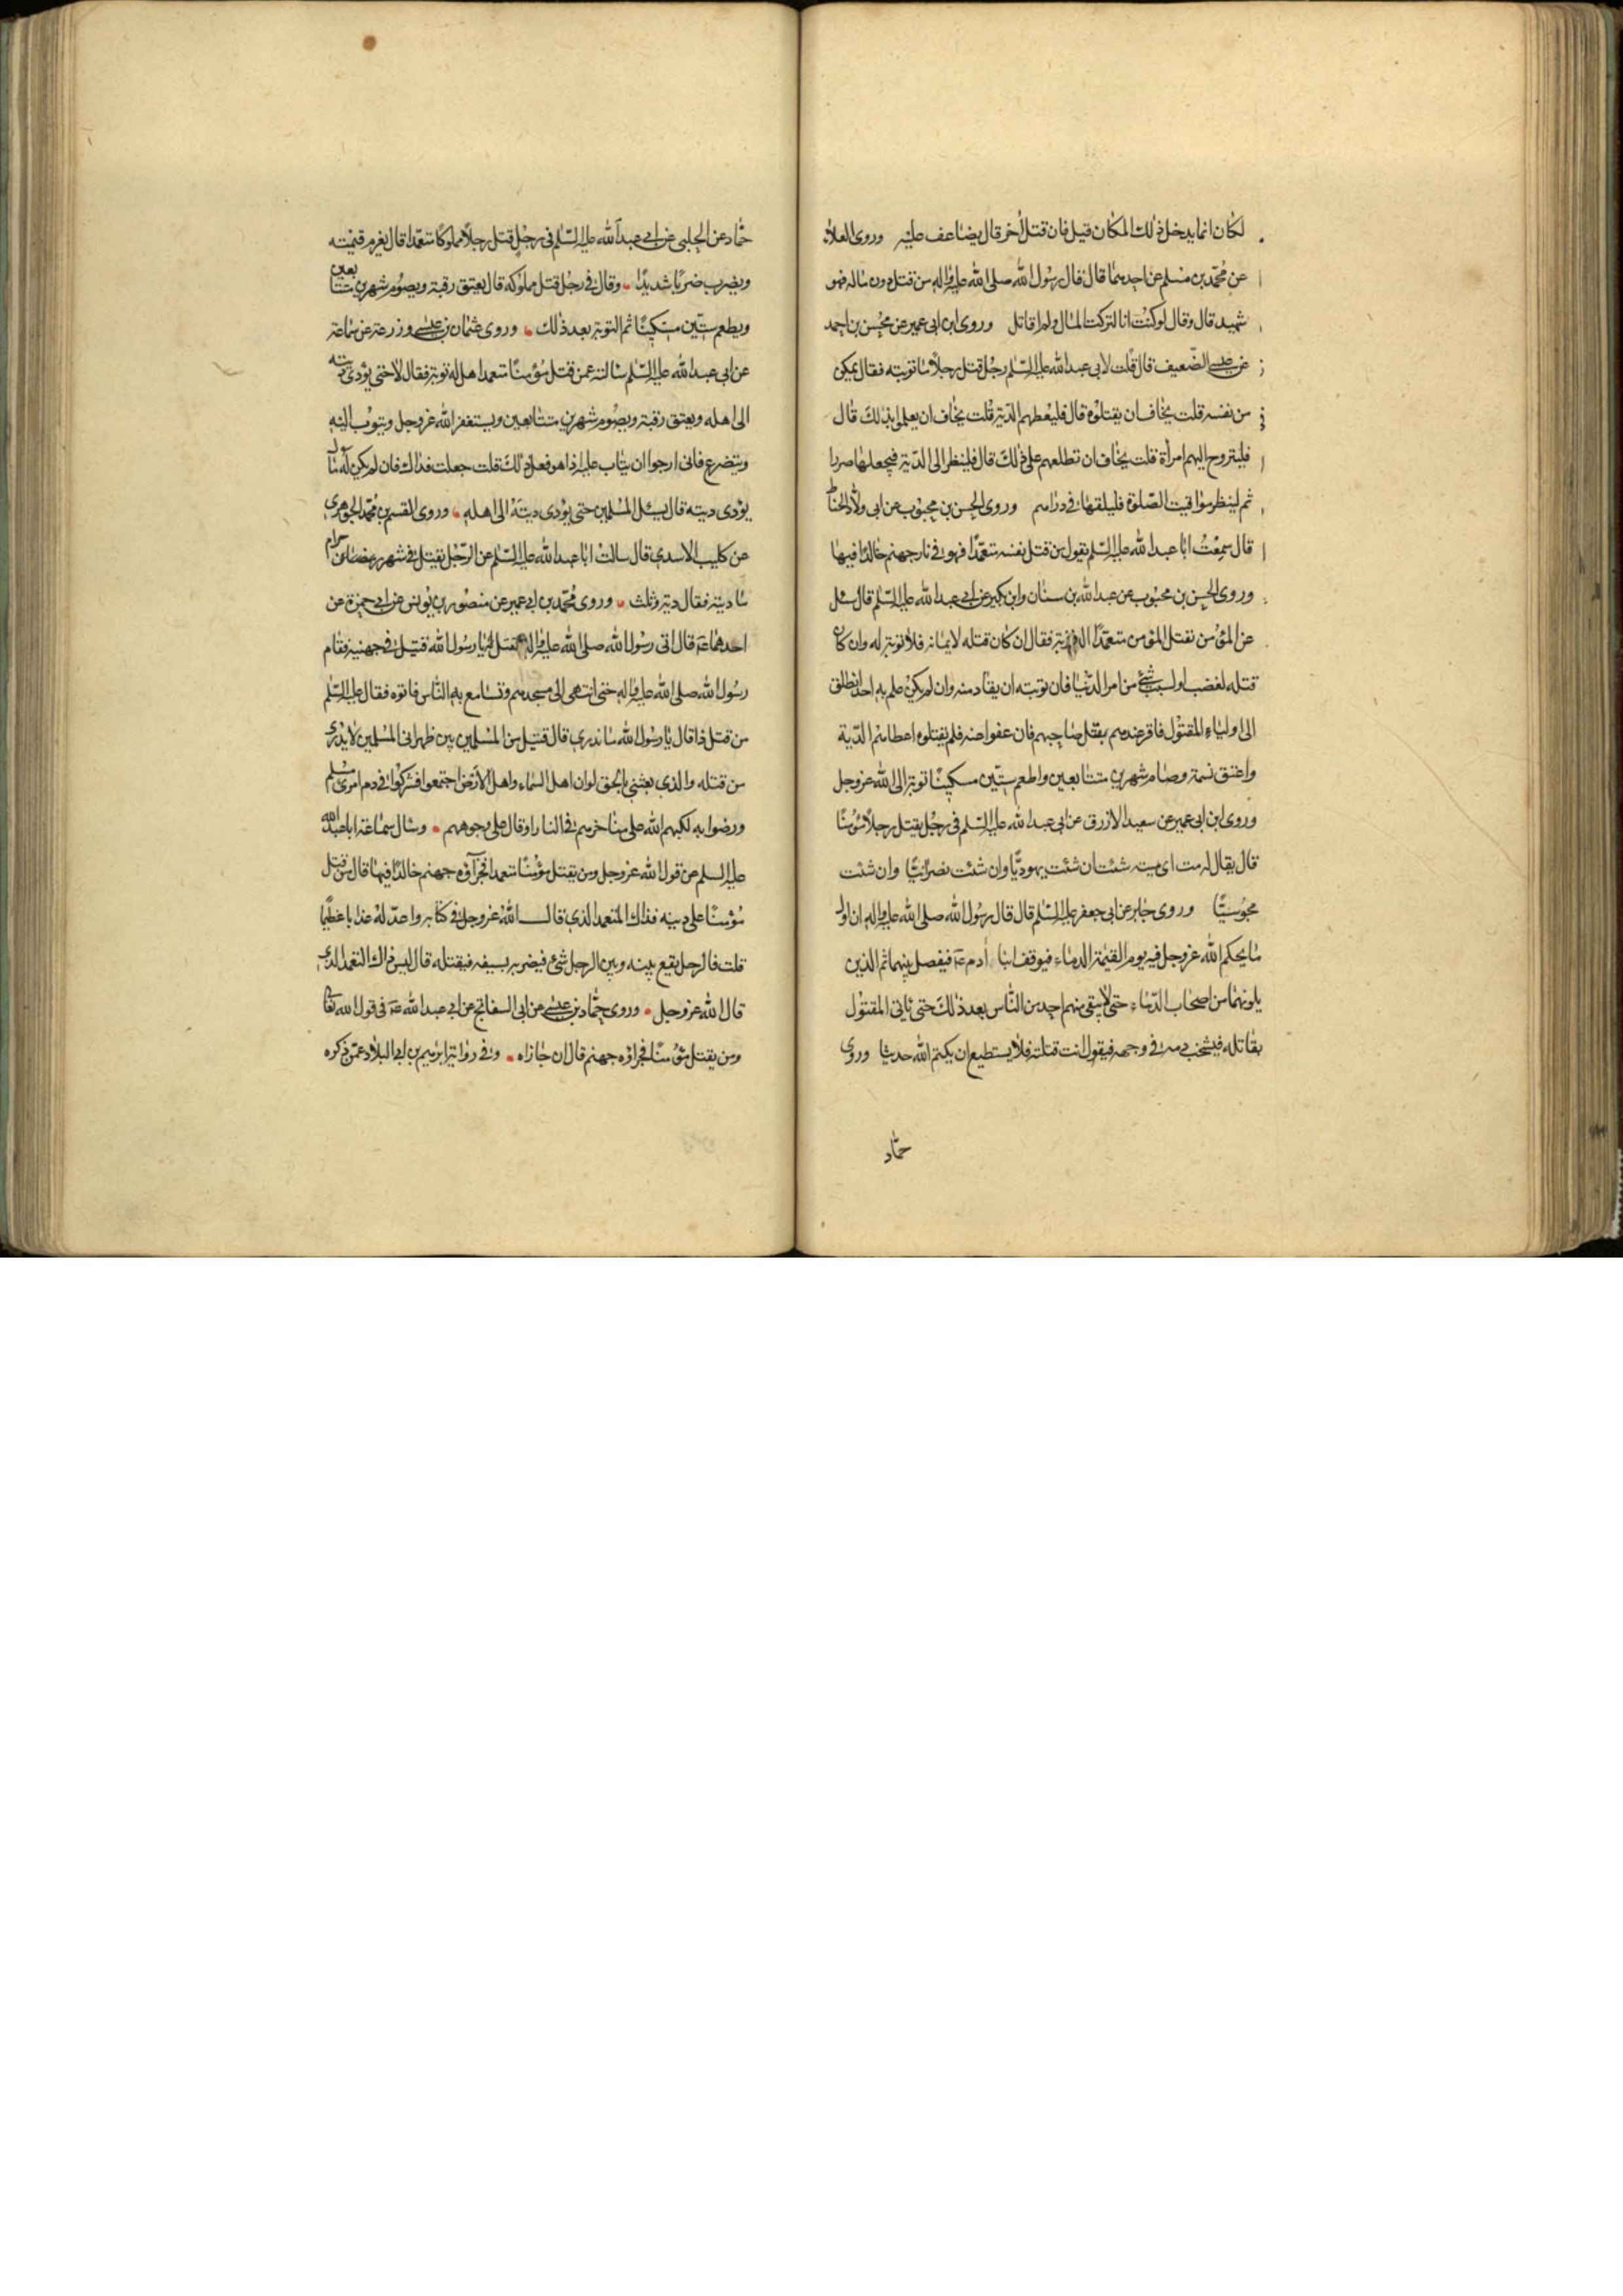 لكان انما يدخل ذلك المكان قيل فان قتل اخر قال يضاعف عليه وروى العلاء
عن محمد بن مسلم عن احدهما قال قال رسول الله صلى الله عليه واله من قتل دون ماله فهو
شهيد قال وقال لو كنت انا لتركت المال ولم اقاتل وروى ابن ابى عمير عن محسن بن احمد
عن عيسى الضعيف قال قلت لابى عبد الله عليه السلم رجل قتل رجلا ما توبته فقال يمكن
من نفسه قلت يخاف ان يقتلوه قال فليعطهم الدية قلت يخاف ان يعلموا بذلك قال
فليتزوج اليهم امرأة قلت يخاف ان تطلعهم على ذلك قال فلينظر الى الدية فيجعلها صررا
ثم لينظر مواقيت الصلوة فليلقها فى دارهم وروى الحسن بن محبوب عن ابى ولاد الحناط
قال سمعت ابا عبد الله عليه السلم يقول من قتل نفسه متعمدا فهو فى نار جهنم خالدا فيها
وروى الحسن بن محبوب عن عبد الله بن سنان وابن بكير عن ابى عبد الله عليه السلم قال سئل
عن المؤمن يقتل المؤمن متعمدا اله توبة فقال ان كان قتله لايمانه فلا توبة له وان كان
قتله لغضب او لسبب شئ من امر الدنيا فان توبته ان يقاد منه وان لم يكن علم به احد انطلق
الى اولياء المقتول فاقر عندهم بقتل صاحبهم فان عفوا عنه فلم يقتلوه اعطاهم الدية
واعتق نسمة وصام شهرين متتابعين واطعم ستين مسكينا توبة الى الله عز وجل
وروى ابن ابى عمير عن سعيد الازرق عن ابى عبد الله عليه السلم فى رجل يقتل رجلا مؤمنا
قال يقال له مت اى ميتة شئت ان شئت يهوديا وان شئت نصرانيا وان شئت
مجوسيا وروى جابر عن ابى جعفر عليه السلم قال قال رسول الله صلى الله عليه واله ان اول
ما يحكم الله عز وجل فيه يوم القيمة الدماء فيوقف ابنا ادم عه فيفصل بينهما ثم الذين
يلونهما من اصحاب الدماء حتى لا يبقى منهم احد من الناس بعد ذلك حتى ياتى المقتول
بقاتله فيشخب دمه فى وجهه فيقول انت قتلته فلا يستطيع ان يكتم الله حديثا وروى
حماد
حماد عن الحلبى عن ابى عبد الله عليه السلم فى رجل قتل رجلا مملوكا متعمدا قال يغرم قيمته
ويضرب ضربا شديدا وقال فى رجل قتل مملوكه قال يعتق رقبة ويصوم شهرين متتابعين
ويطعم ستين مسكينا ثم التوبة بعد ذلك وروى عثمان بن عيسى وزرعة عن سماعة
عن ابى عبد الله عليه السلم سالته عمن قتل مؤمنا متعمدا هل له توبة فقال لا حتى يؤدى ديته
الى اهله ويعتق رقبة ويصوم شهرين متتابعين ويستغفر الله عز وجل ويتوب اليه
ويتضرع فانى ارجو ان يتاب عليه اذا هو فعل ذلك قلت جعلت فداك فان لم يكن له مال
يؤدى ديته قال يسئل المسلمين حتى يؤدى ديته الى اهله وروى القسم بن محمد الجوهرى
عن كليب الاسدى قال سالت ابا عبد الله عليه السلم عن الرجل يقتل فى شهر حرام
ما ديته فقال دية وثلث وروى محمد بن ابى عمير عن منصور بن يونس عن ابى حمزة عن
احدهما عه قال اتى رسول الله صلى الله عليه واله فقيل له يا رسول الله قتيل فى جهنية فقام
رسول الله صلى الله عليه واله حتى انتهى الى مسجدهم وتسامع به الناس فاتوه فقال عليه السلم
من قتل ذا قال يا رسول الله ما ندرى قال قتيل من المسلمين بين ظهرانى المسلمين لا يدرى
من قتله والذى بعثنى بالحق لو ان اهل السماء واهل الارض اجتمعوا فشركوا فى دم امرئ مسلم
ورضوا به لكبهم الله على مناخرهم فى النار او قال على وجوههم وسال سماعة ابا عبد الله
عليه السلم عن قول الله عز وجل ومن يقتل مؤمنا متعمدا فجزاؤه جهنم خالدا فيها قال من قتل
مؤمنا على دينه فذاك المتعمد الذى قال الله عز وجل فى كتابه واعد له عذابا عظيما
قلت فالرجل يقع بينه وبين الرجل شئ فيضربه بسيفه فيقتله قال ليس ذاك المتعمد الذى
قال الله عز وجل وروى حماد بن عيسى عن ابى السفاتج عن ابى عبد الله عه فى قول الله تعالى
ومن يقتل مؤمنا فجزاؤه جهنم قال ان جازاه وفى رواية ابراهيم بن ابى البلاد عمن ذكره